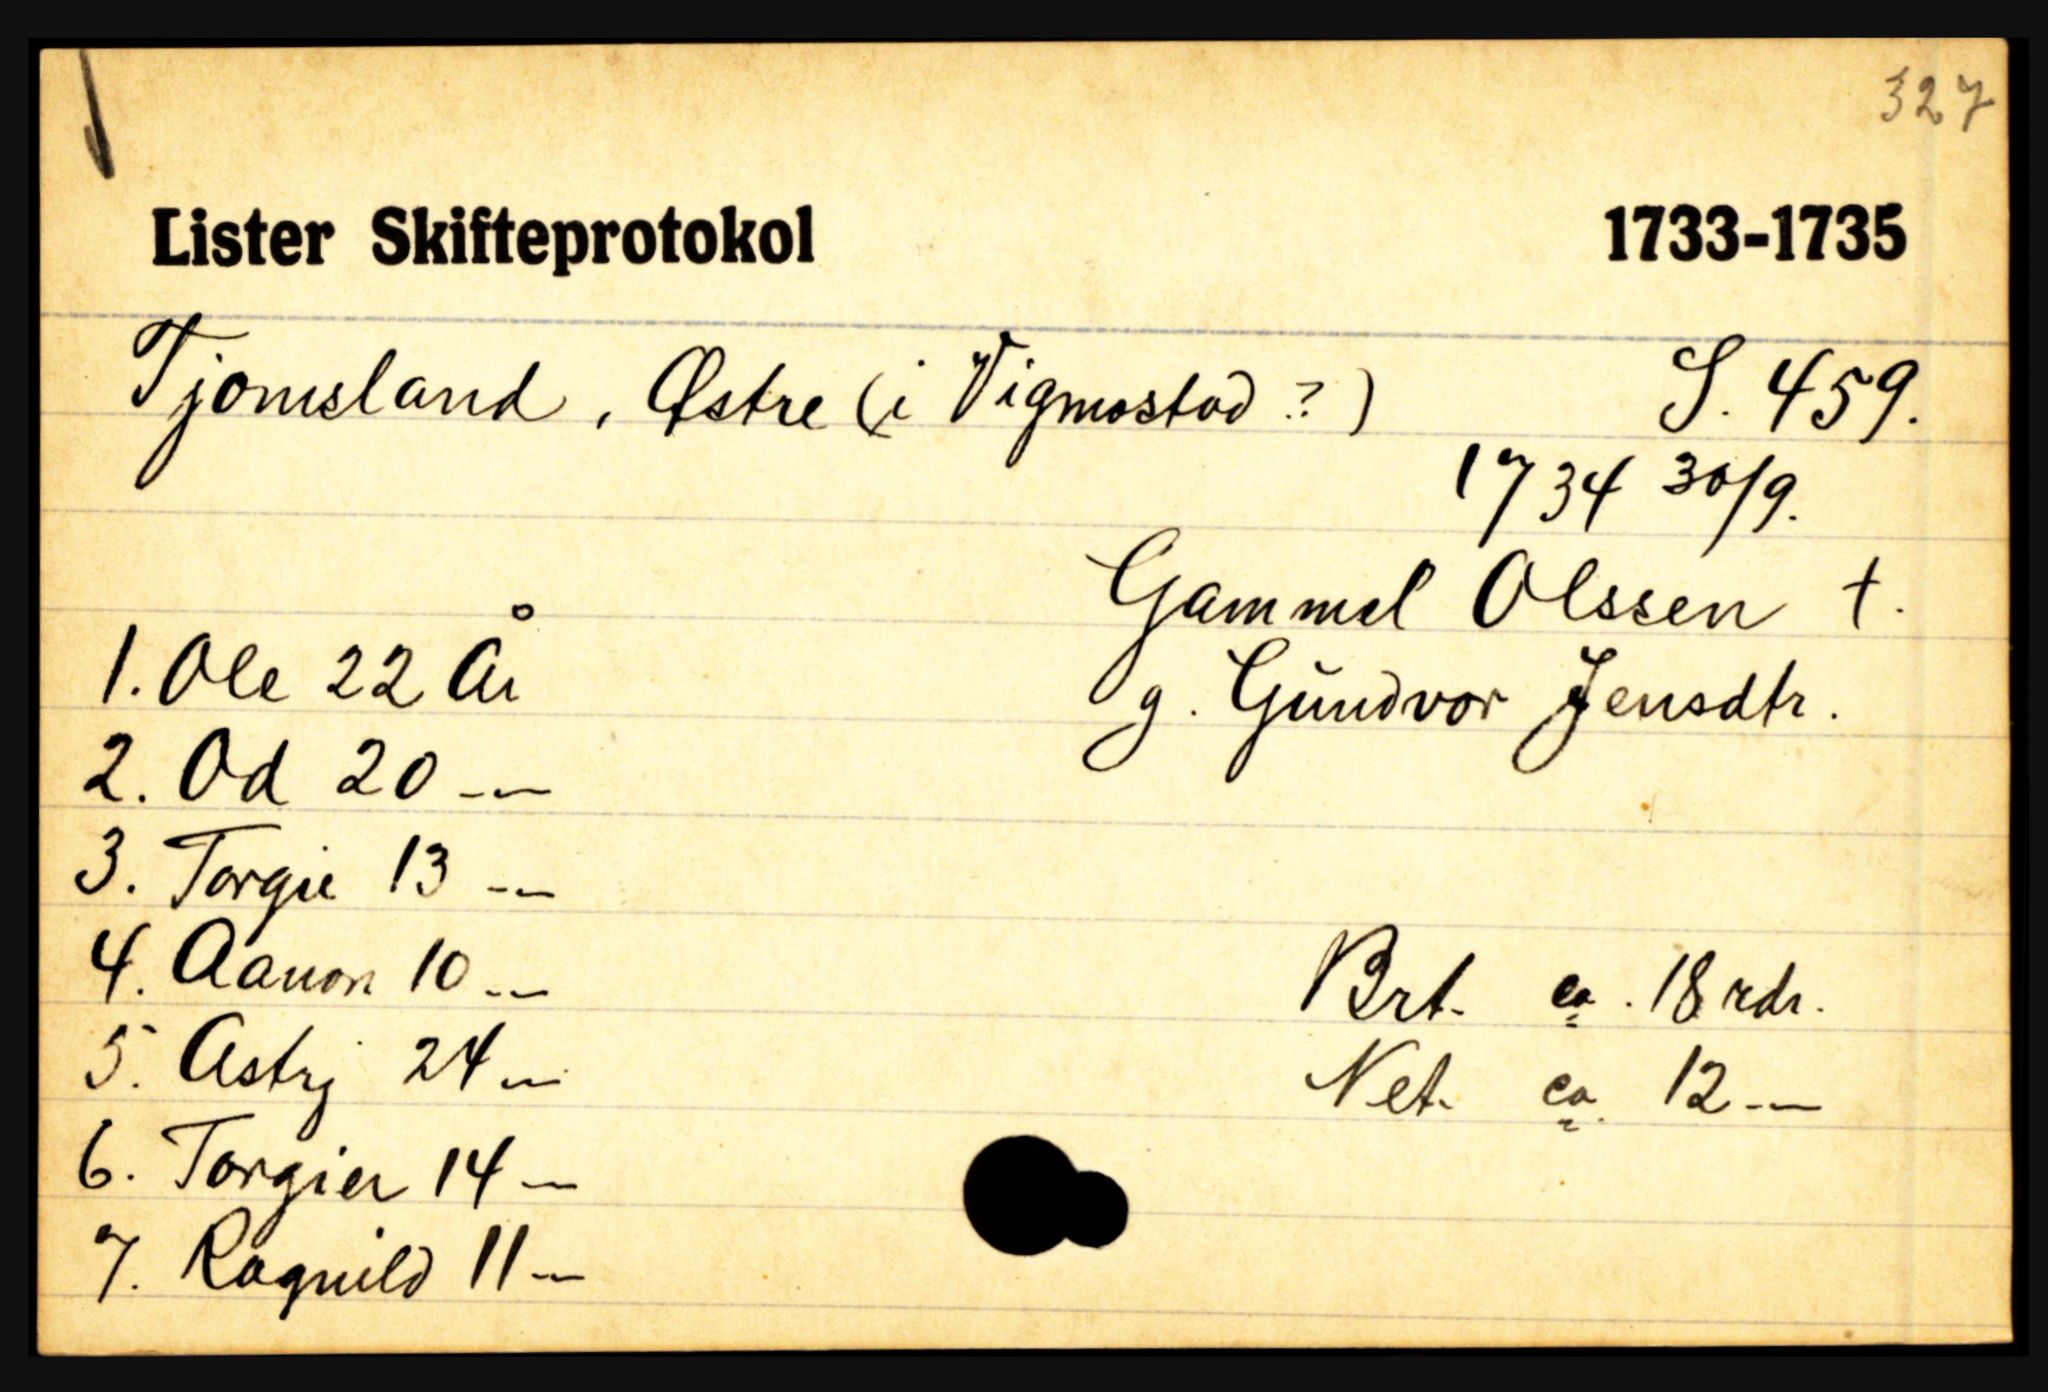 327
Lister Skifteprotokol 1733-1735
Tjomsland, Østre (i Vigmostad ?) S. 459.
1734 30/9.
Gammel Olssen †.
g. Gundvor Jensdtr.
1. Ole 22 År
2. Od 20 -"-
3. Torgie 13 -"-
4. Aanon 10 -"-
5. Astrj 24 -"-
6. Torgier 14 -"-
7. Ragnild 11 -"-
Brt. ca. 18 rdr.
Net. ca. 12 -"-